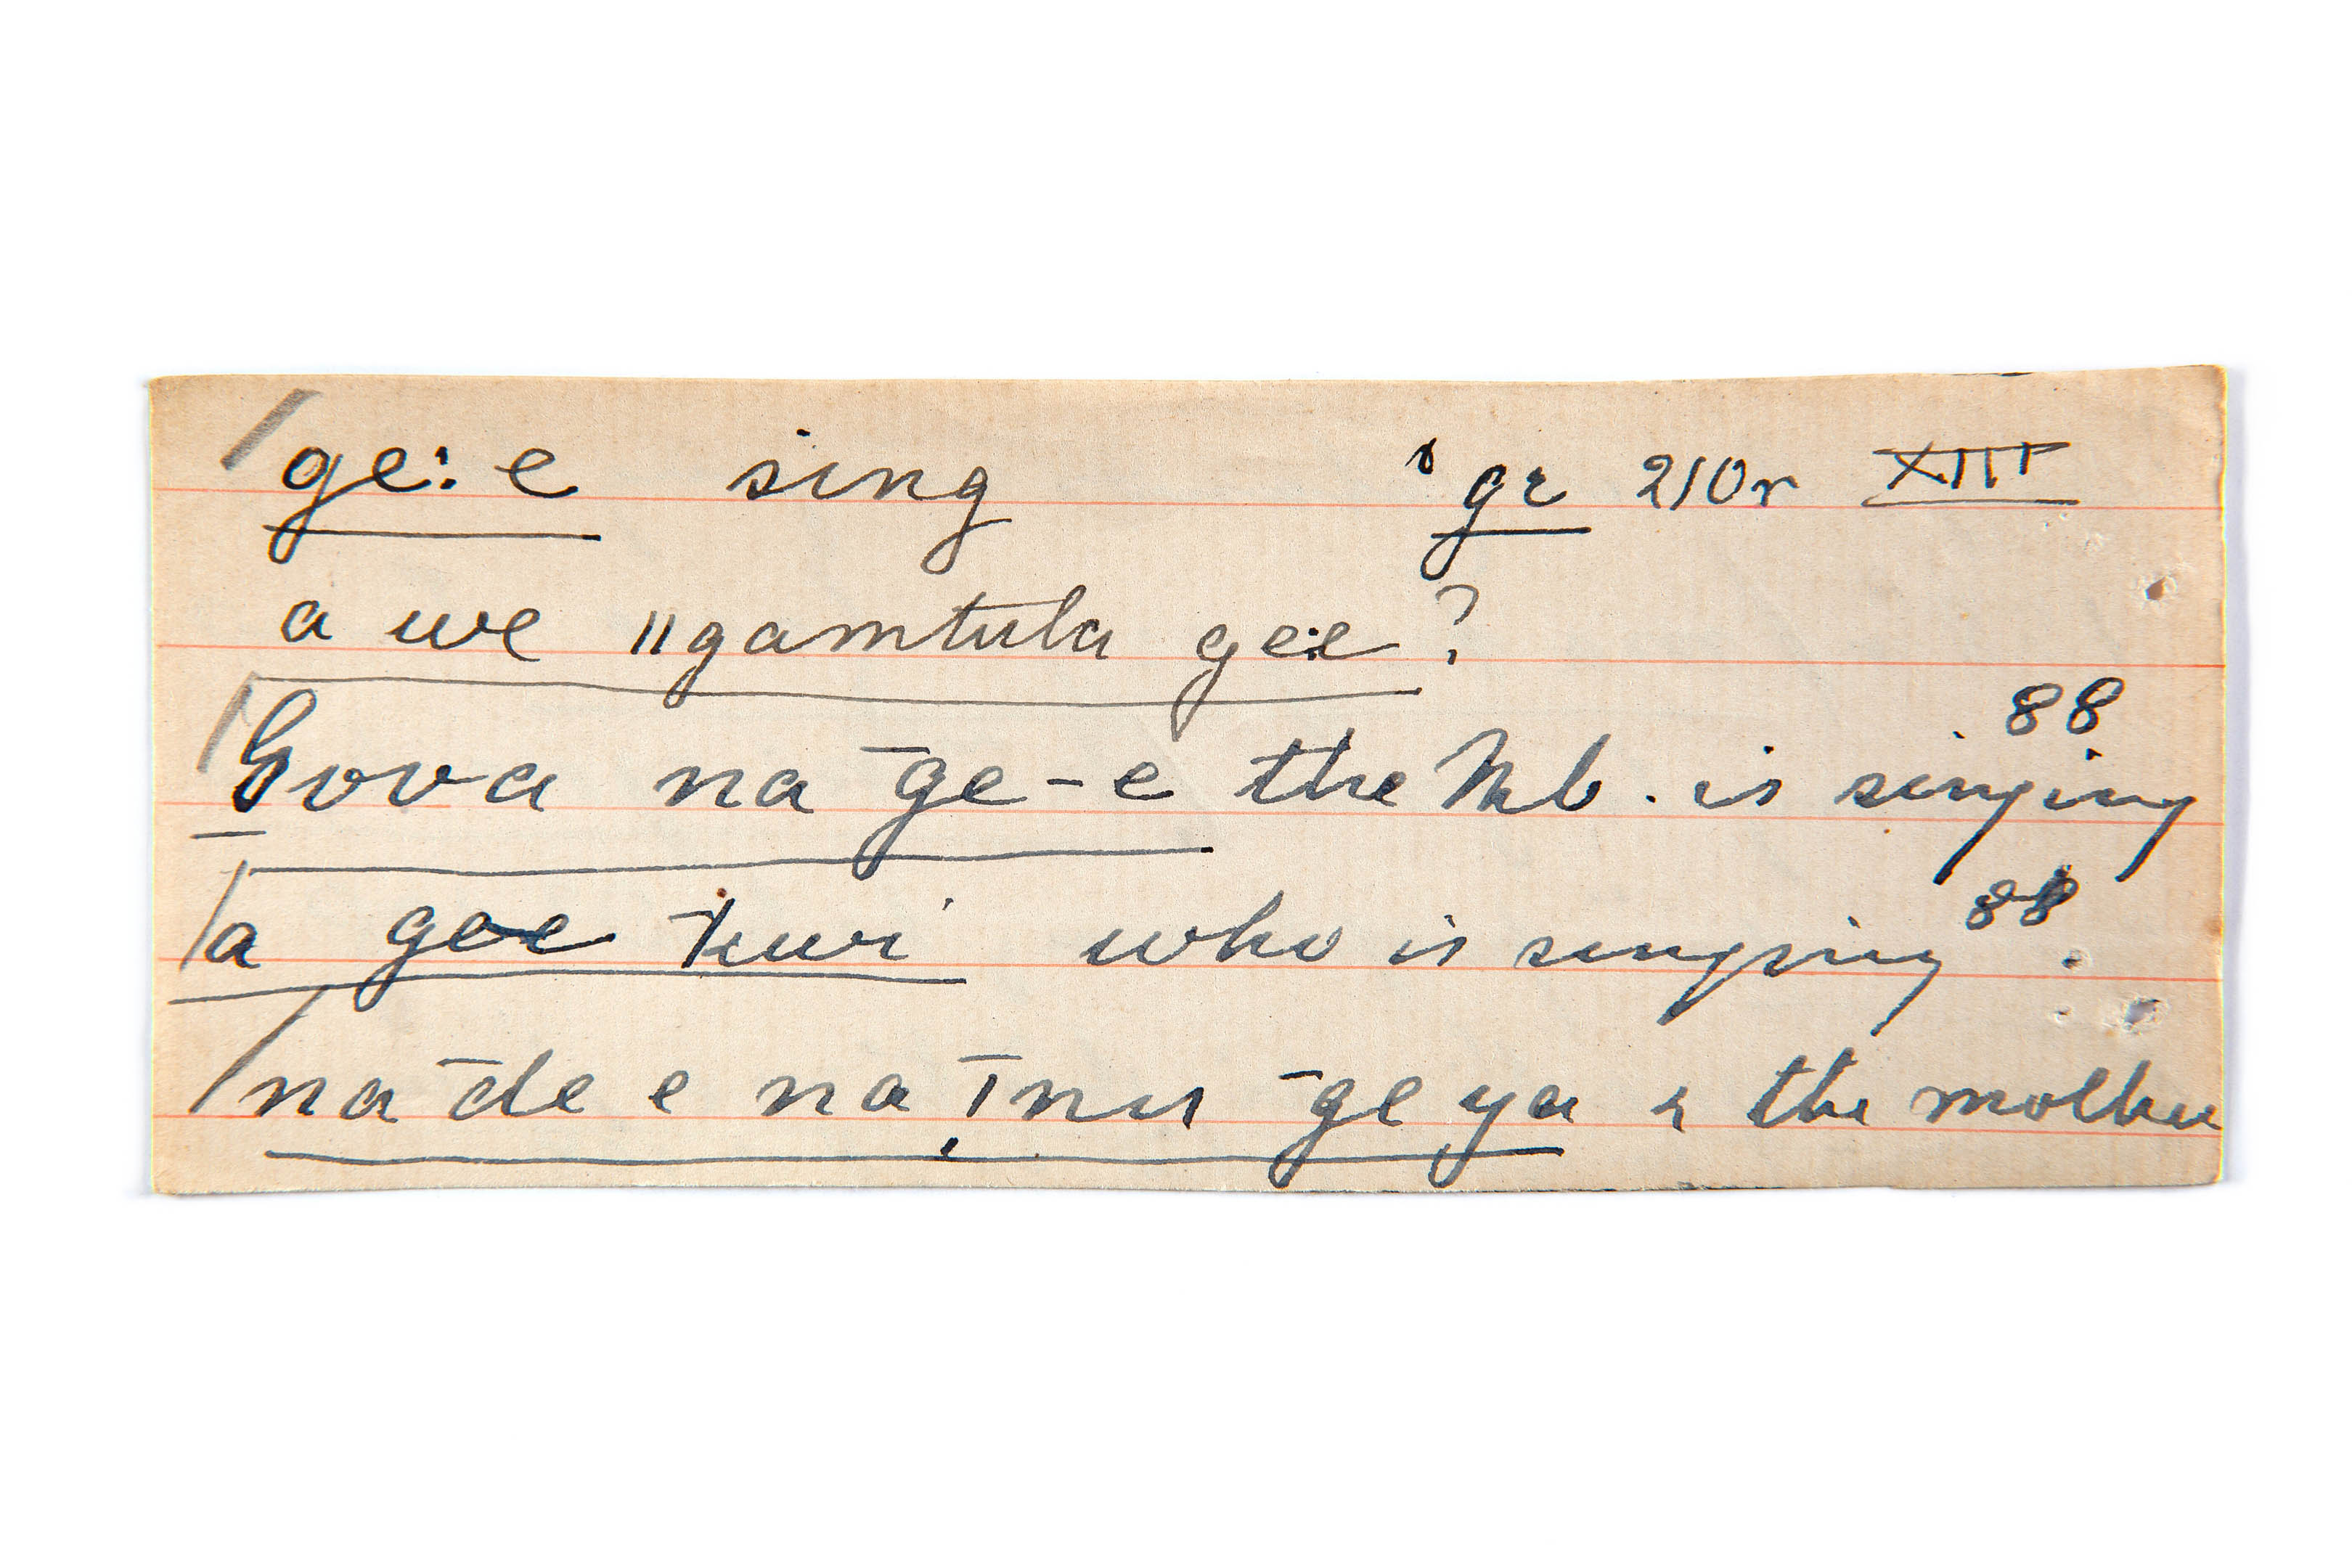 ge:e sing ge 210r XIII
a we ǁgamtula ge:e ?
88
Gova na ¯ge-e the Mb. is singing
a gee ¯kuwi who is singing 88.
na ¯de e na ¯ ̗nu ¯ge ya & the mother